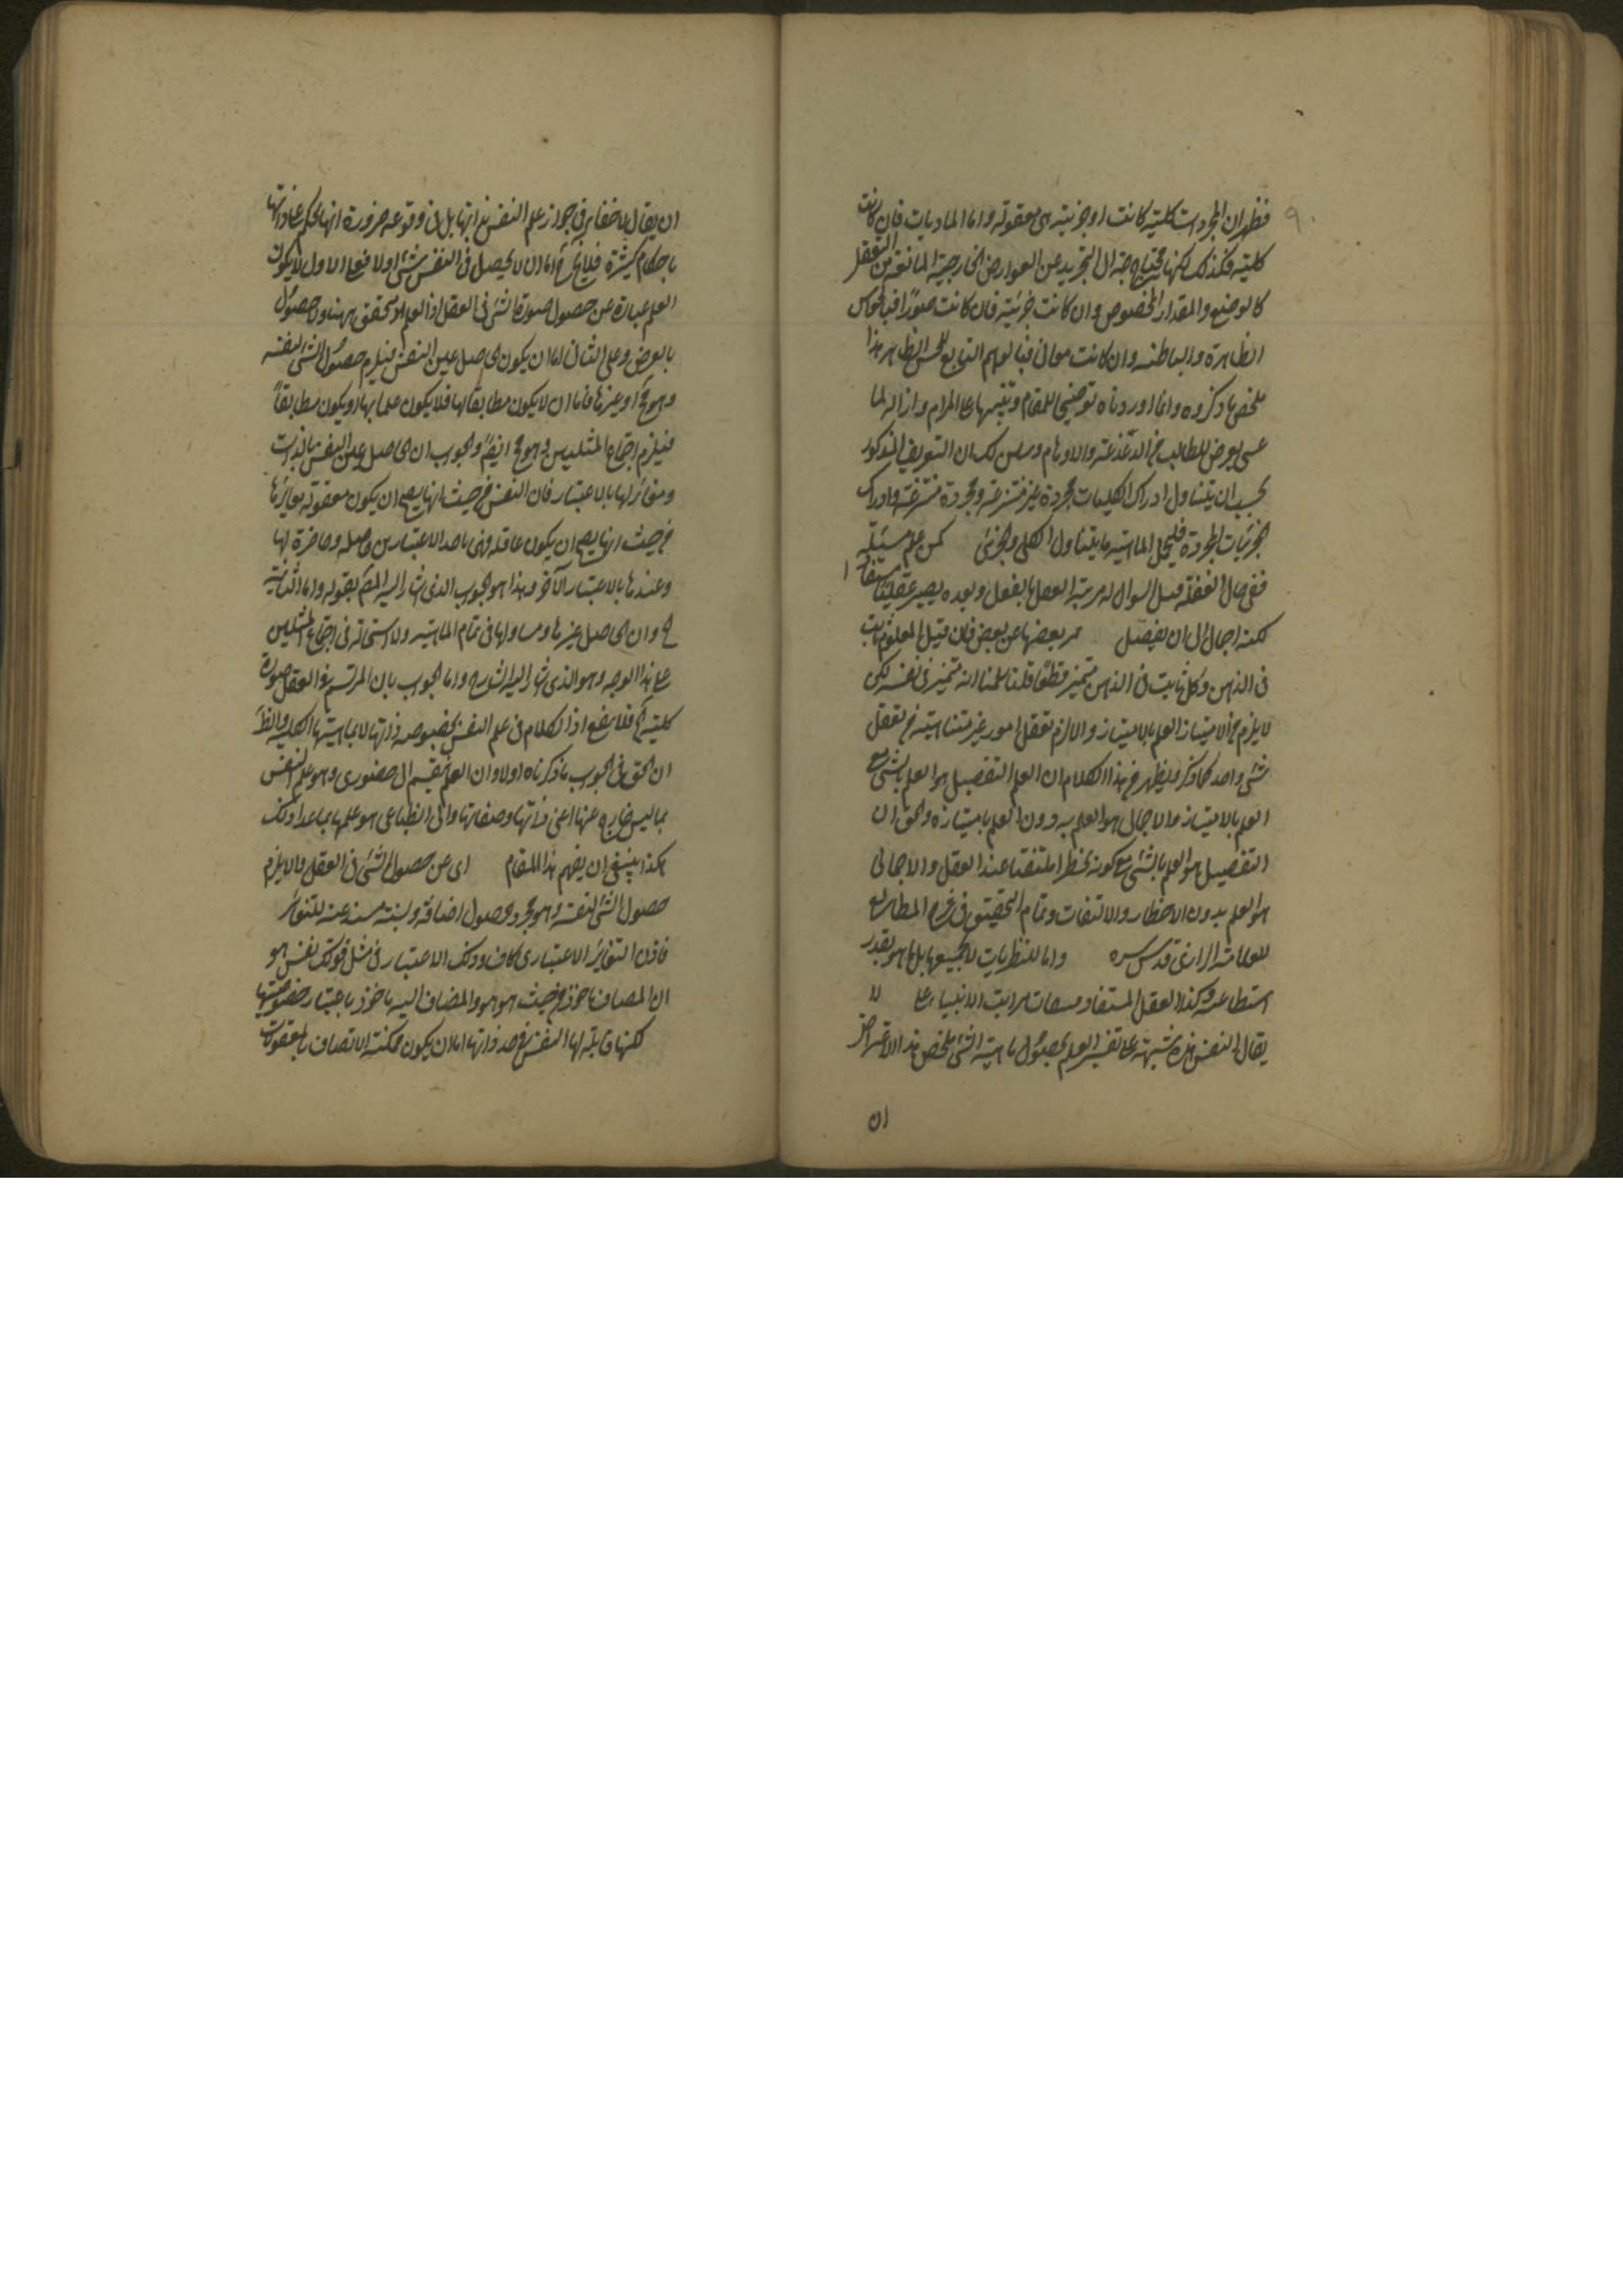 فظهر ان المجردات كلية كانت او جزئية هى معقولة واما الماديات فان كانت
كلية فكذلك لكنها محتاجة الى التجريد عن العوارض الخارجية المانعة من التعقل
كالوضع والمقدار المخصوص وان كانت جزئية فان كانت صورا فبالحواس
الظاهرة والباطنة وان كانت معانى فبالوهم التابع للحس الظاهر هذا
ملخص ما ذكروه وانما اوردناه توضيحا للمقام وتنبيها على المرام وازالة لما
عسى يعرض للطالب من الدغدغة والاوهام ان التعريف المذكور
يجب ان يتناول ادراك الكليات مجردة غير منتزعة ومجردة منتزعة وادراك
الجزئيات المجردة فليحمل الماهية ما يتناول الكلى والجزئى كمن علم مسئلة
ففى حال الغفلة قبل السوال له مرتبة العقل بالفعل وبعده يصير عقلا مستفادا
لكنه اجمالى الى ان يفصل بعضها عن بعض فان قيل المعلوم ثابت
فى الذهن وكل ثابت فى الذهن متميز قطعا قلنا سلمنا انه متميز فى نفسه لكن
لا يلزم من الامتياز العلم بالامتياز والا لزم تعقل امور غير متناهية من تعقل
شئ واحد كما ذكر ويظهر من هذا الكلام ان العلم التفصيل هو العلم بالشئ مع
العلم بالامتياز والاجمال هو العلم به دون العلم بامتيازه والحق ان
التفصيل هو العلم بالشئ مع كونه مخطرا ملتفتا عند العقل والاجمالى
هو العلم بدون الاخطار والالتفات وتمام التحقيق فى شرح المطالع
للعلامة الرازى قدس سره واما للنظريات لا بجميعها بل ما هو بقدر
استطاعته وكذا العقل المستفاد مراتب الانبياء لا
يقال النفس هذه شبهة على تفسير العلم بحصول ماهية الشئ ملخص هذا الاعتراض
ان
ان يقال لا خفاء فى جواز علم النفس بذاتها بل فى وقوعه ضرورة انها تحكم على ذاتها
باحكام كثيرة فلا يخ اما ان لا يحصل فى النفس شئ او لا فعلى الاول لا يكون
العلم عبارة عن حصول صورة الشئ فى العقل اذ العلم متحقق ههنا دون حصول
بالعرض وعلى الثانى اما ان يكون الحاصل عين النفس فيلزم حصول الشئ لنفسه
وهو مح او غيرها فاما ان لا يكون مطابقا لها فلا يكون علما بها او يكون مطابقا
فيلزم اجتماع المثلين وهو مح ايضا والجواب ان الحاصل عين النفس بالذات
ومغائر لها بالاعتبار فان النفس من حيث انها يصح ان يكون معقولة يغايرها
من حيث انها يصح ان يكون عاقلة فهى باحد الاعتبارين حاصلة وحاضرة لها
وعندها بالاعتبار الآخر وهذا هو الجواب الذى اشار اليه المص بقوله واما الثانية
ح وان الحاصل غيرها ومساو لها فى تمام الماهية ولا استحالة فى اجتماع المثلين
على هذا الوجه وهو الذى اشار اليه الشارح واما الجواب بان المرتسم فى العقل صورة
كلية مح فلا ينفع اذ الكلام فى علم النفس بخصوصه ذاتها لا بماهيتها الكلية والظ
ان الحق فى الجواب ما ذكرناه اولا وان العلم ينقسم الى حضورى وهو علم النفس
بما ليس خارجا عنها اعنى ذاتها وصفاتها والى انطباعى هو علمها بما عدا ذلك
هكذا ينبغى ان يفهم هذا المقام اى عن حصول الشئ فى العقل والا يلزم
حصول الشئ لنفسه وهو مح وحصول اضافة ونسبة مستدعية للتغائر
فاذن التغائر الاعتبارى كاف وذلك الاعتبار فى مثل قولك نفس هو
ان المضاف ماخوذ من حيث هو هو والمضاف اليه ماخوذ باعتبار خصوصيتها
لكنها قابلة لها النفس فى حد ذاتها اما ان يكون ممكنة الاتصاف بالمعقولات